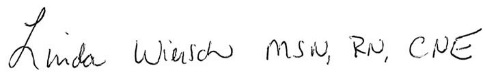 Linda Wiersch MSN, RN, CNE